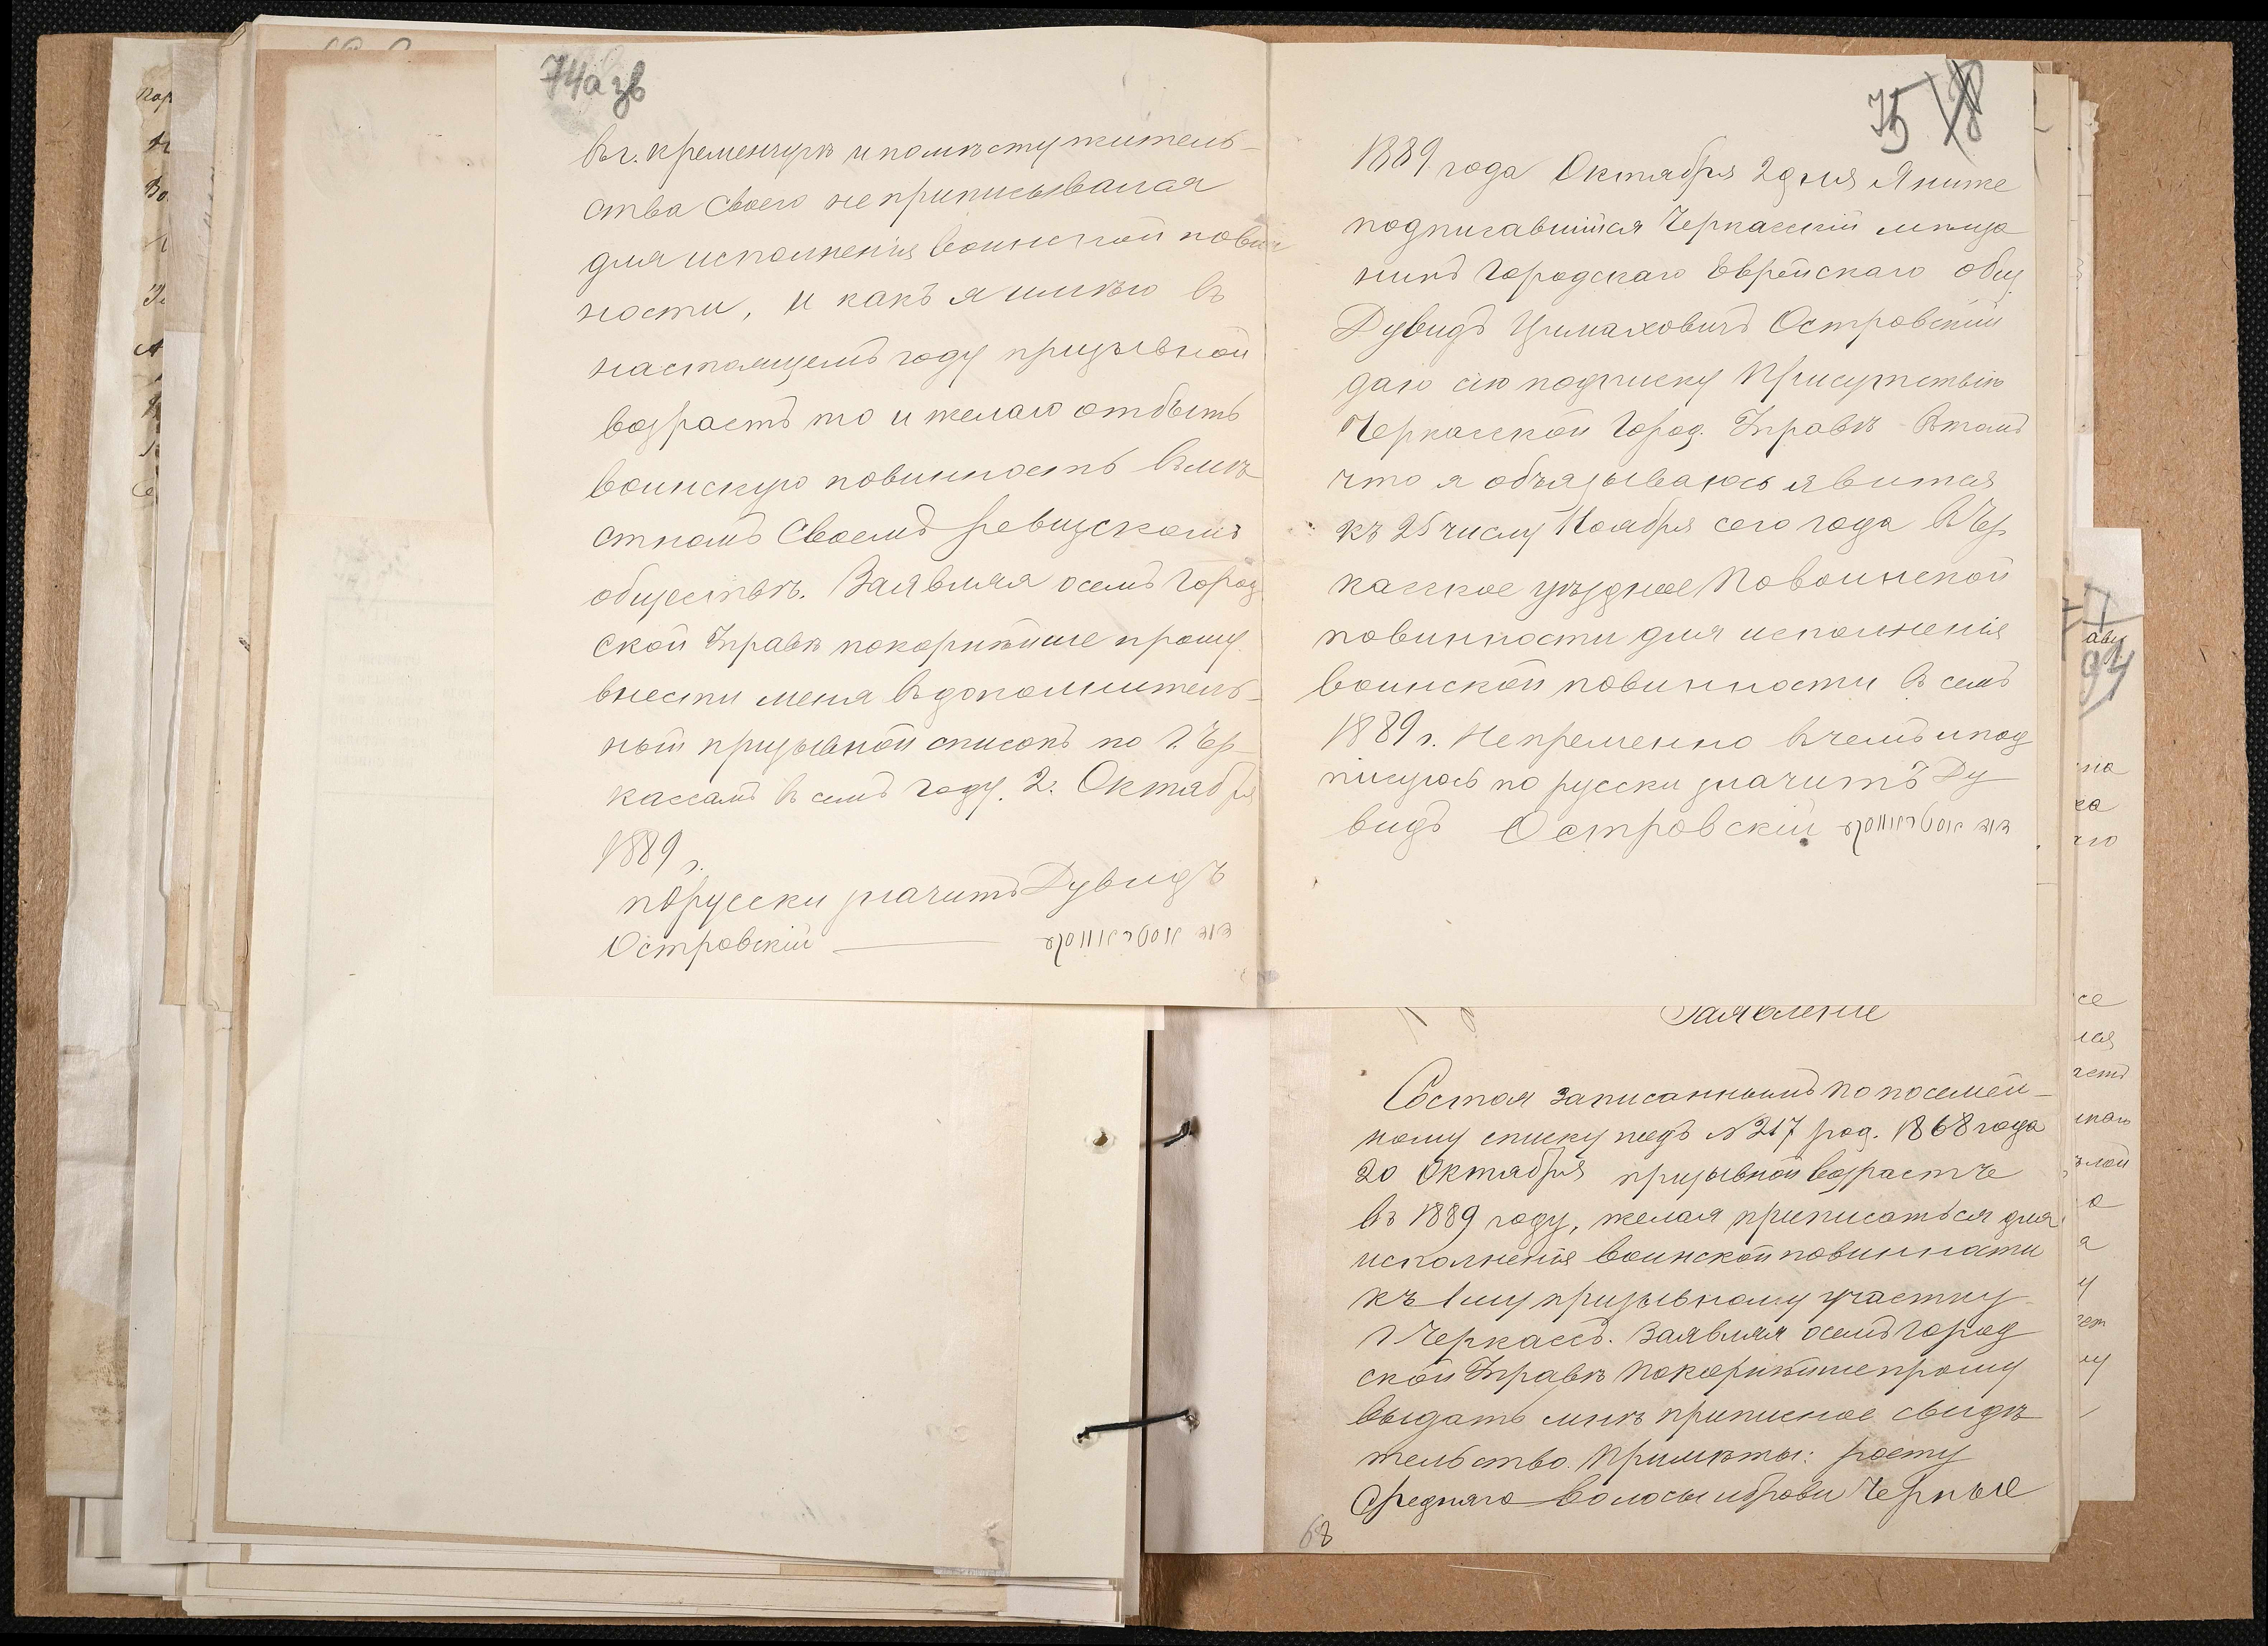 74а зв
въ г. Кременчугѣ и по мѣсту житель-
ства своего не приписывался
для исполненія воинской повин
ности, и какъ я имѣю въ
настоящемъ году призывной
возрастъ то и желаю отбыть
воинскую повинность въ мѣ
стномъ своемъ ревизскомъ
обществѣ. Заявляя о семъ Город
ской Управѣ покорнѣйше прошу
внести меня въ дополнитель-
ный призывной списокъ по г. Чер
кассамъ въ семъ году. 2. Октября
1889 г.
по русски значитъ Дувидъ
Островскій
75
1889 года Октября 2 дня Я ниже
подписавшійся Черкасскій мѣща
нинъ Городскаго Еврейскаго общ
Дувидъ Цимаховичъ Островскій
даю сію подписку Присутствію
Черкасской Город. Управѣ в томъ
что я объязываюсь явится
къ 25 числу Ноября сего года в Чер
касское уѣздное По воинской
повинности для исполненія
воинской повинности в семъ
1889 г. Непременно в чемъ и под
писуюсь по русски значитъ Ду
видъ Островскій
Заявленіе
Состоя записаннымъ по посемей-
ному списку подъ №217 род. 1868 года
20 Октября призывной возрастъ
въ 1889 году, желая приписаться для
исполненія воинской повинности
къ 1му призывному участку
г Черкассъ. Заявляя о семъ Город
ской Управѣ покорнѣйше прошу
выдать мнѣ приписное свидѣ
тельство. Примѣты: росту
Средняго волосы и брови Черные
68